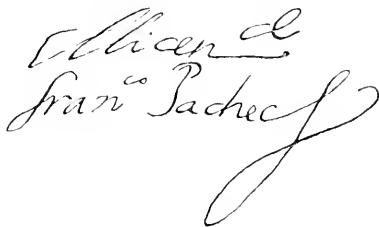 El licen.do
fran.co Pacheco